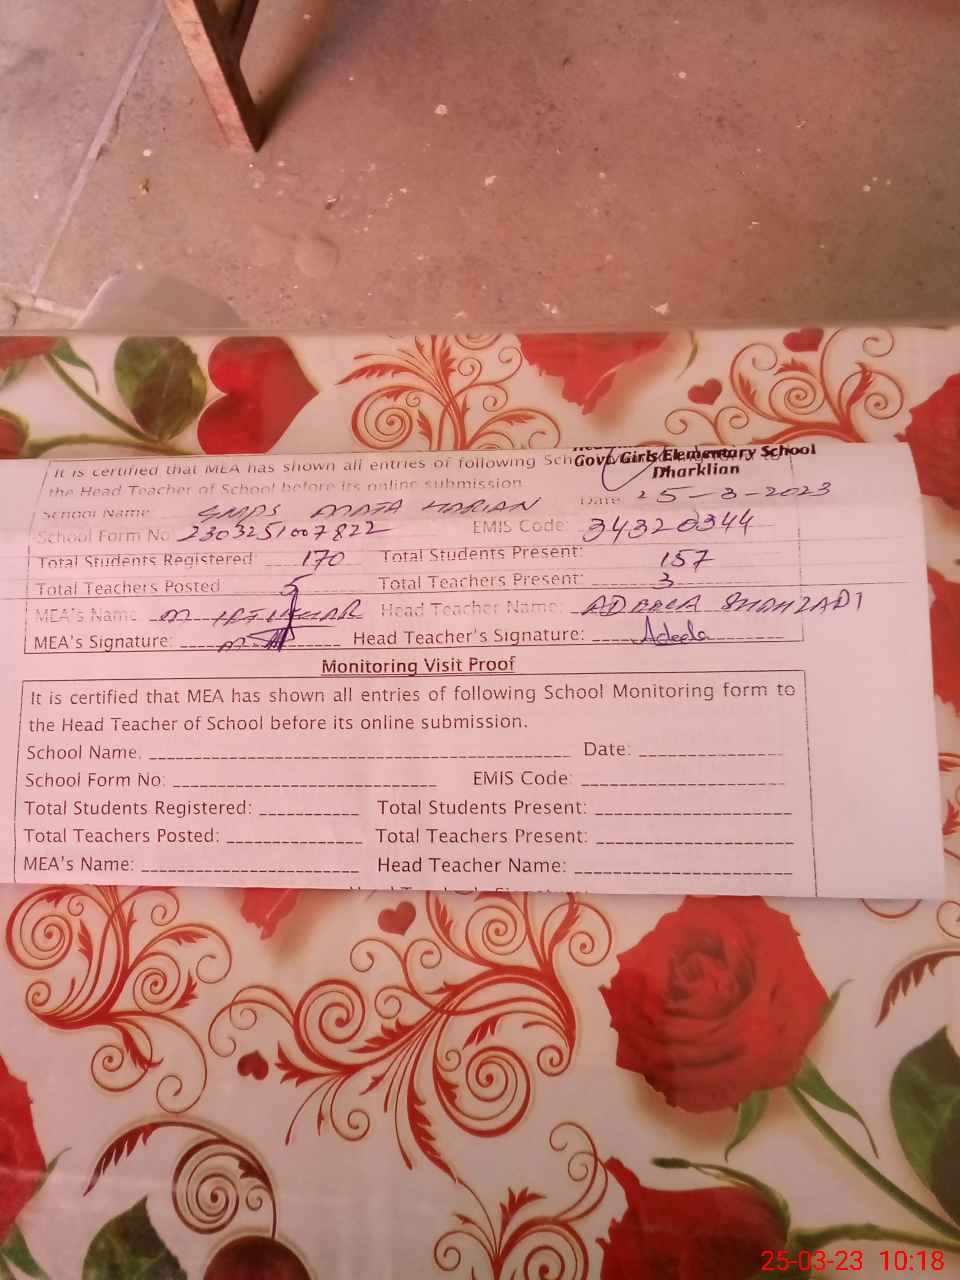 It is certified that MEA has shown all entries of following Sch
Govt. Girls Elementary School
Dharklian
the Head Teacher of School before its online submission.
School Name GMPS MATA HARIAN Date 25-3-2023
School Form No 2303251007822 EMIS Code: 34320344
Total Students Registered: 170 Total Students Present: 157
Total Teachers Posted 5 Total Teachers Present: 3
MEA's Name M IFTIKHAR Head Teacher Name: ADEELA SHAHZADI
MEA's Signature: Head Teacher's Signature: Adeela
Monitoring Visit Proof
It is certified that MEA has shown all entries of following School Monitoring form to
the Head Teacher of School before its online submission.
School Name. Date:
School Form No: EMIS Code:
Total Students Registered: Total Students Present:
Total Teachers Posted: Total Teachers Present:
MEA's Name: Head Teacher Name:
25-03-23 10:18